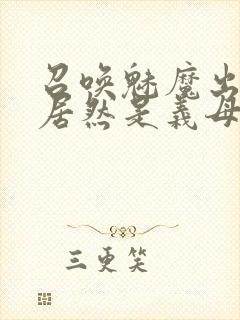 召唤魅魔出
居然是義母
三更笑